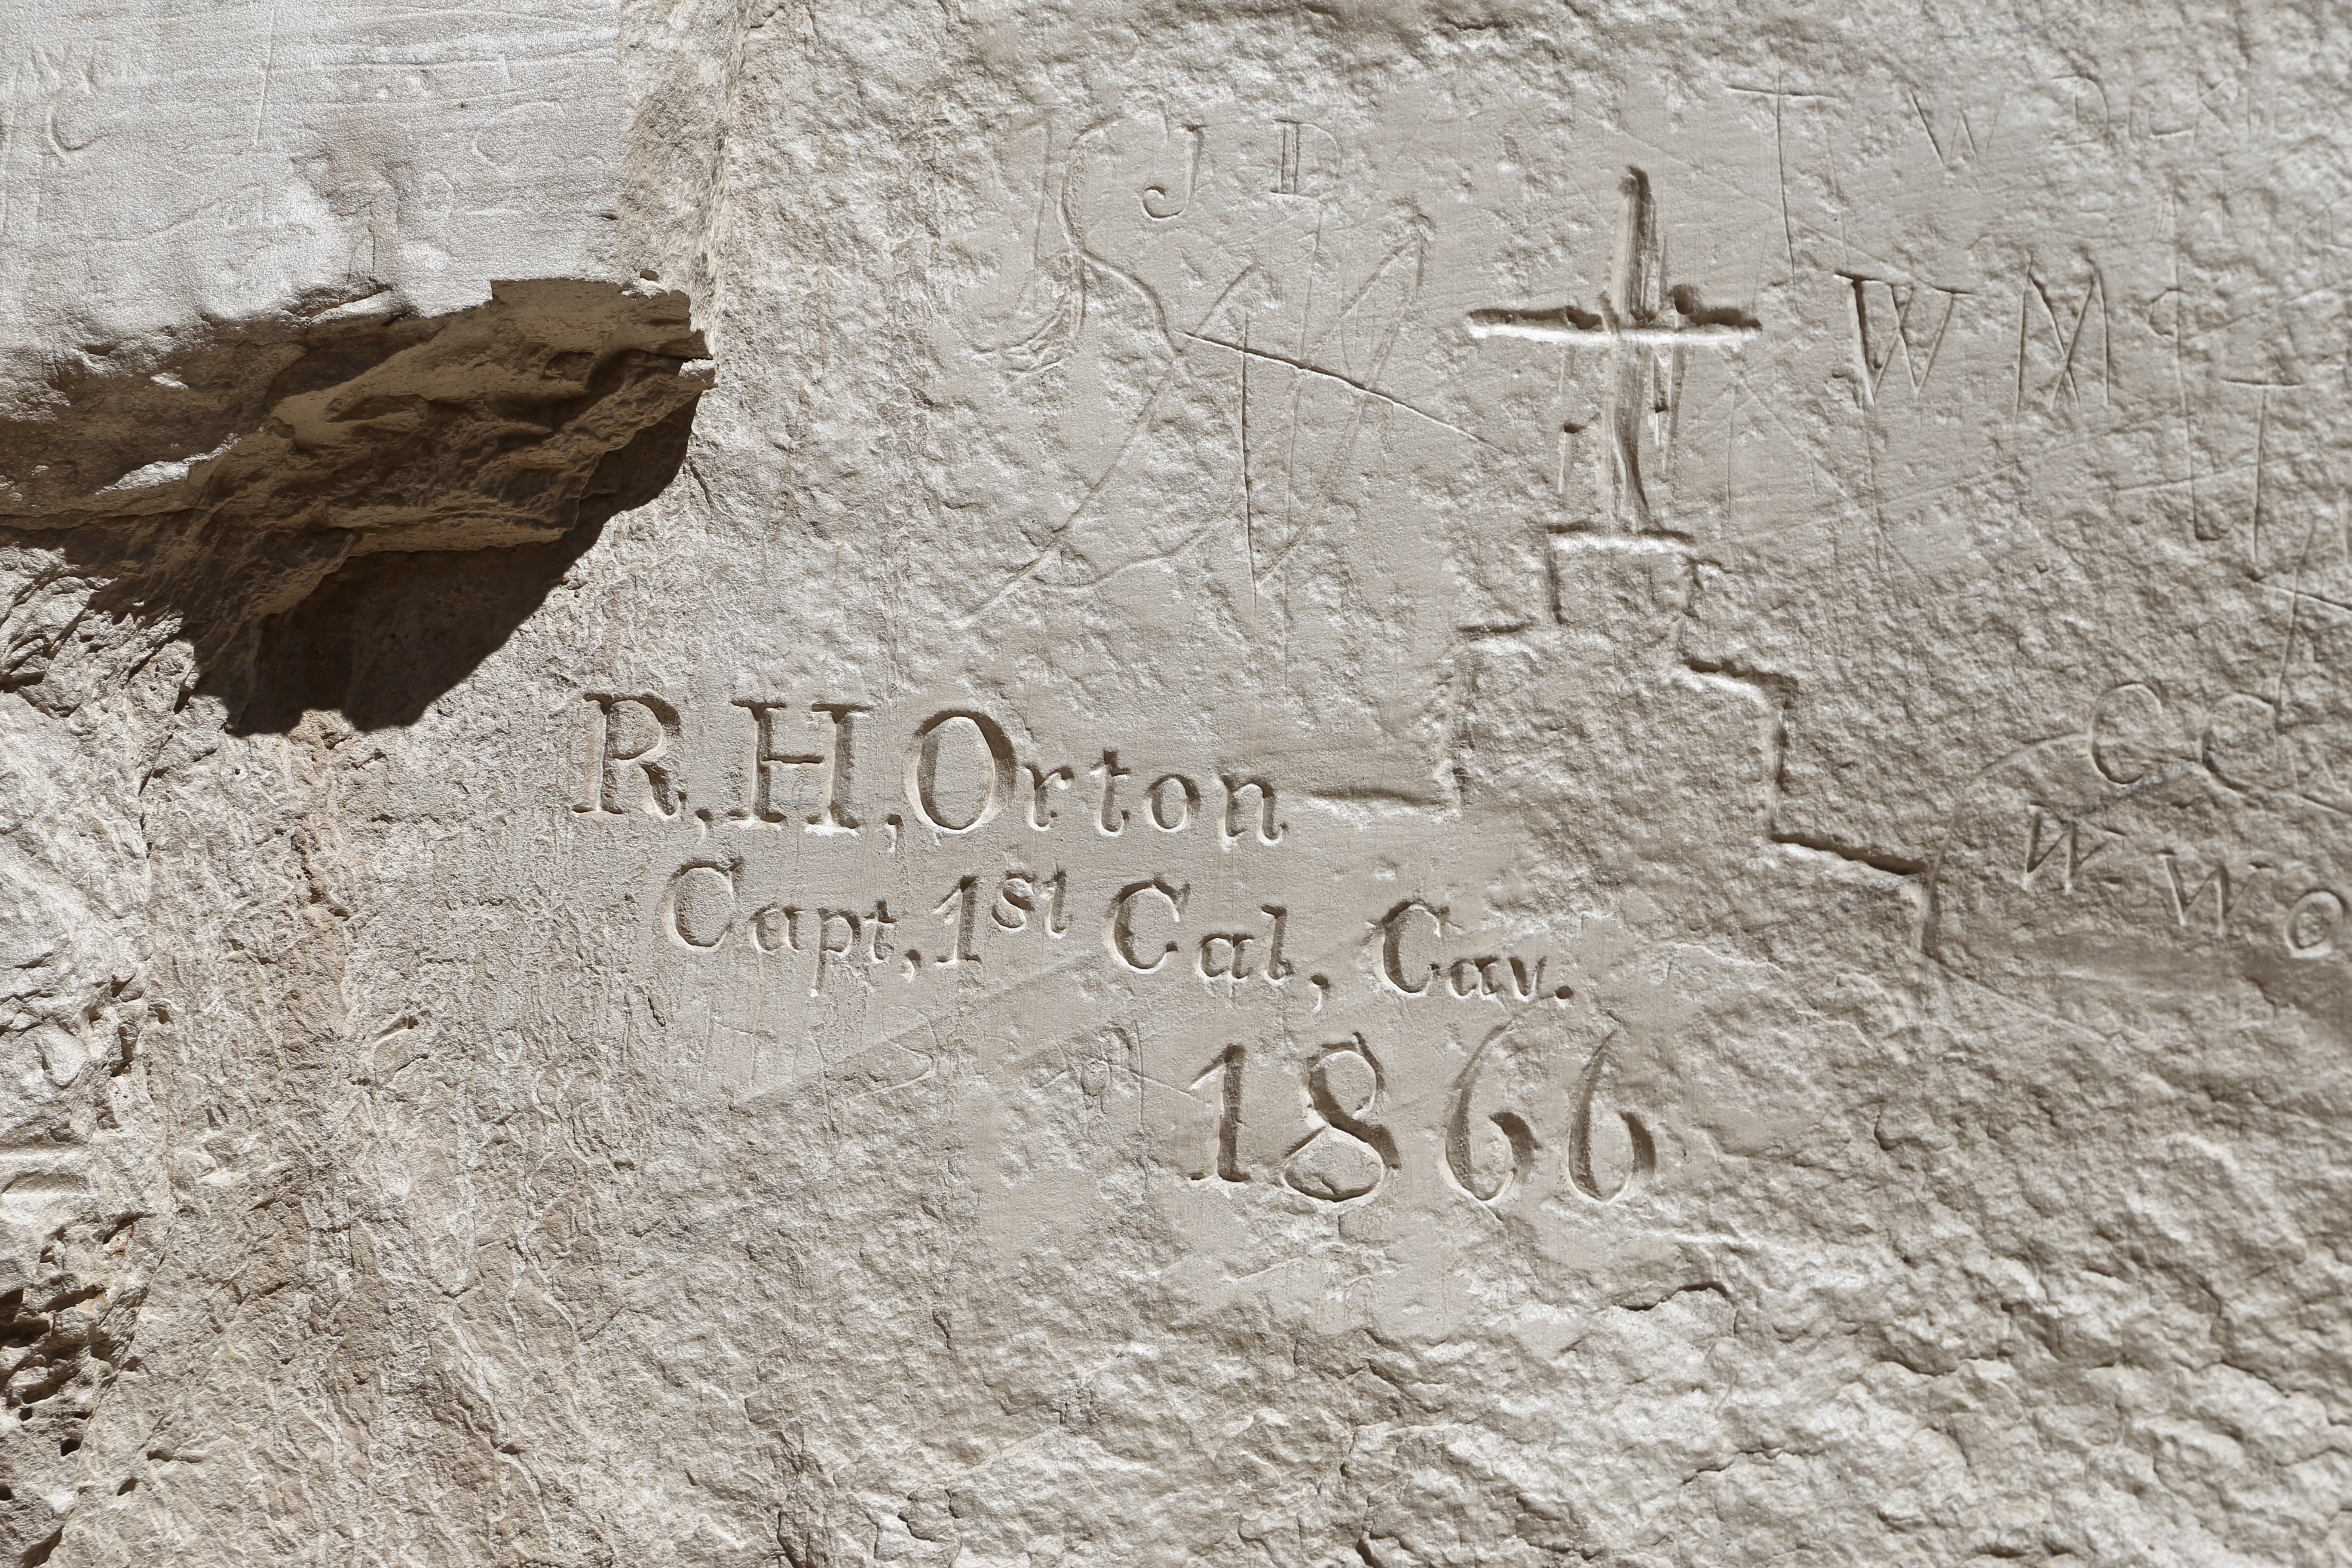 J D
W M
R, H, Orton
Capt, 1st Cal, Cav.
1866